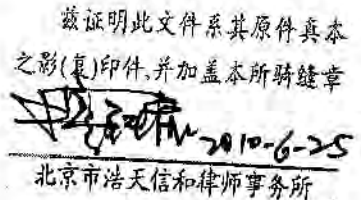 兹证明此文件系其原件真本
之影(复)印件、并加盖本所骑缝章
2010-6-25
北京市浩天信和律师事务所